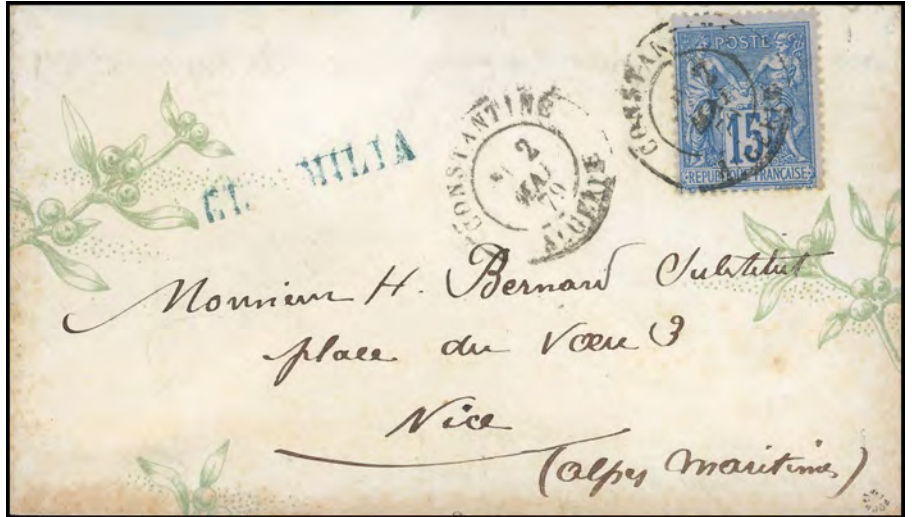 POSTE
15
REPUBLIQUE FRANCAISE
CONSTANTINE
2
MAI
CONSTANTINE
2
MAI
79
ALGERIE
EL MILIA
Monsieur H. Bernard Substitut
place du Vœu 3
Nice
(alpes maritimes)